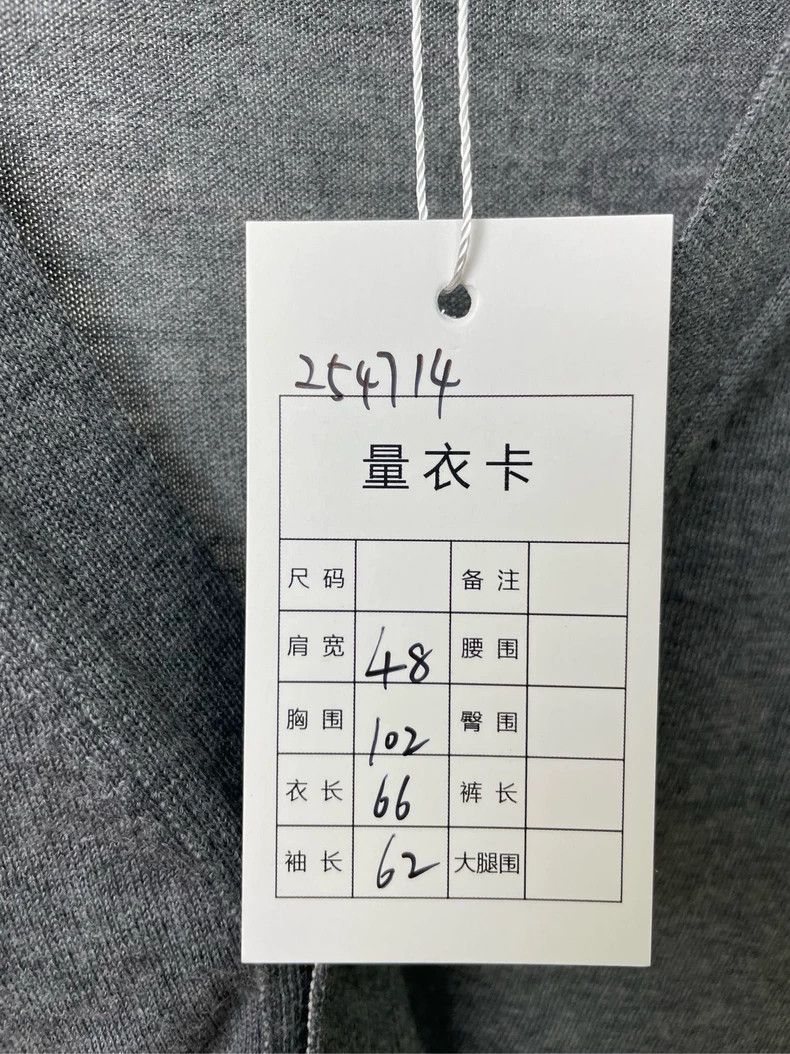 254714
量衣卡
尺码 备注
肩宽 48 腰围
胸围 102 臀围
衣长 66 裤长
袖长 62 大腿围